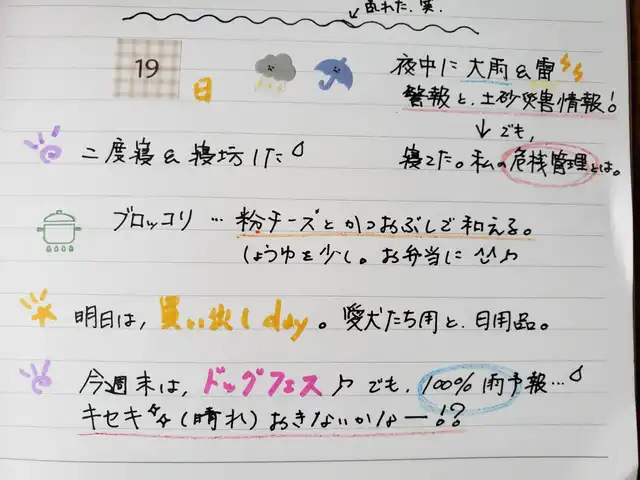 乱れた、笑。
19
日
夜中に大雨&雷
警報と、土砂災害情報!
↓でも、
寝てた。私の危桟管理とは。
二度寝&寝坊した
ブロッコリ … 粉チーズとかつおぶしで和える。
しょうゆを少し。お弁当に♪
明日は、買い出しday。愛犬たち用と、日用品。
今週末は、ドッグフェス♪でも、100%雨予報…
キセキ(晴れ)おきないかなー!?